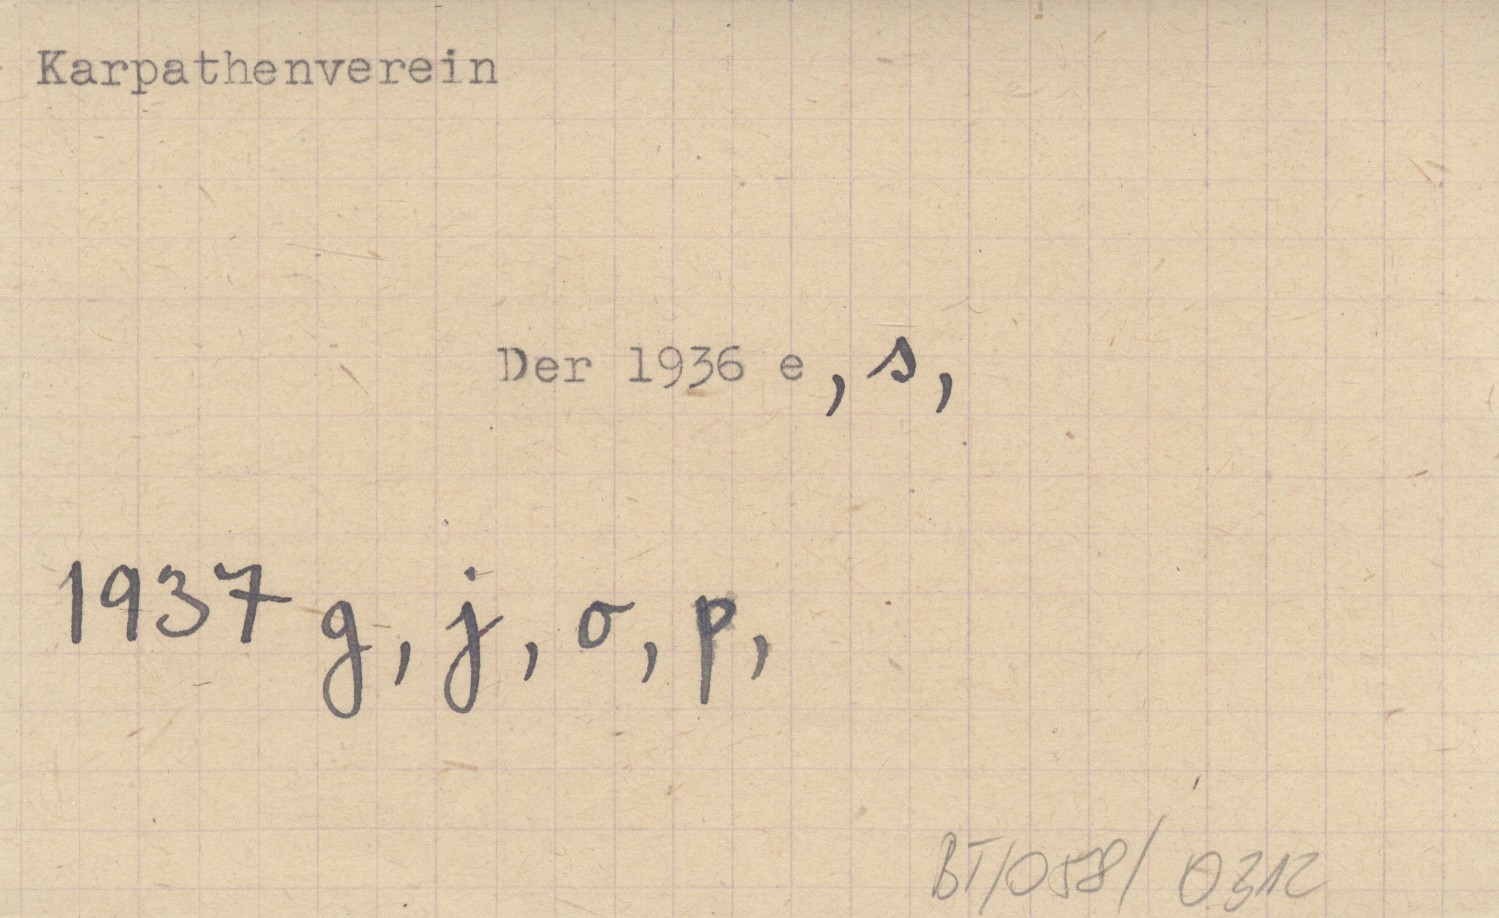 Karpathenverein
Der 1936 e, s,
1937 g, j, o, p,
BT/058/0312